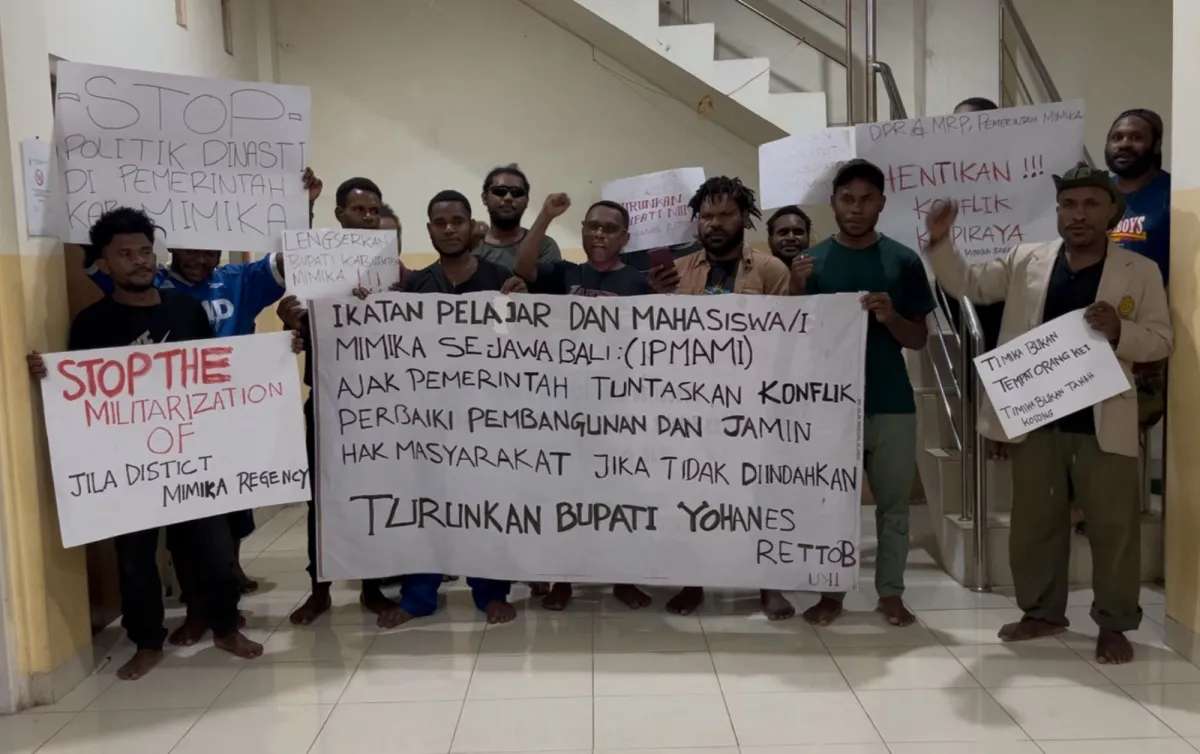 -STOP-
POLITIK DINASTI
DI PEMERINTAH
KAB. MIMIKA
LENGSERKAN
BUPATI KABUPATEN
MIMIKA !!!
STOP THE
MILITARIZATION
OF
JILA DISTICT
MIMIKA REGENCY
IKATAN PELAJAR DAN MAHASISWA/I
MIMIKA SE-JAWA BALI :(IPMAMI)
AJAK PEMERINTAH TUNTASKAN KONFLIK
PERBAIKI PEMBANGUNAN DAN JAMIN
HAK MASYARAKAT JIKA TIDAK DIINDAHKAN
TURUNKAN BUPATI YOHANES
RETTOB
DPR & MRP, PEMERINTAH MIMIKA
HENTIKAN !!!
KONFLIK
KAPIRAYA
TIMIKA BUKAN
TEMPAT ORANG KEI
TIMIKA BUKAN TANAH
KOSONG